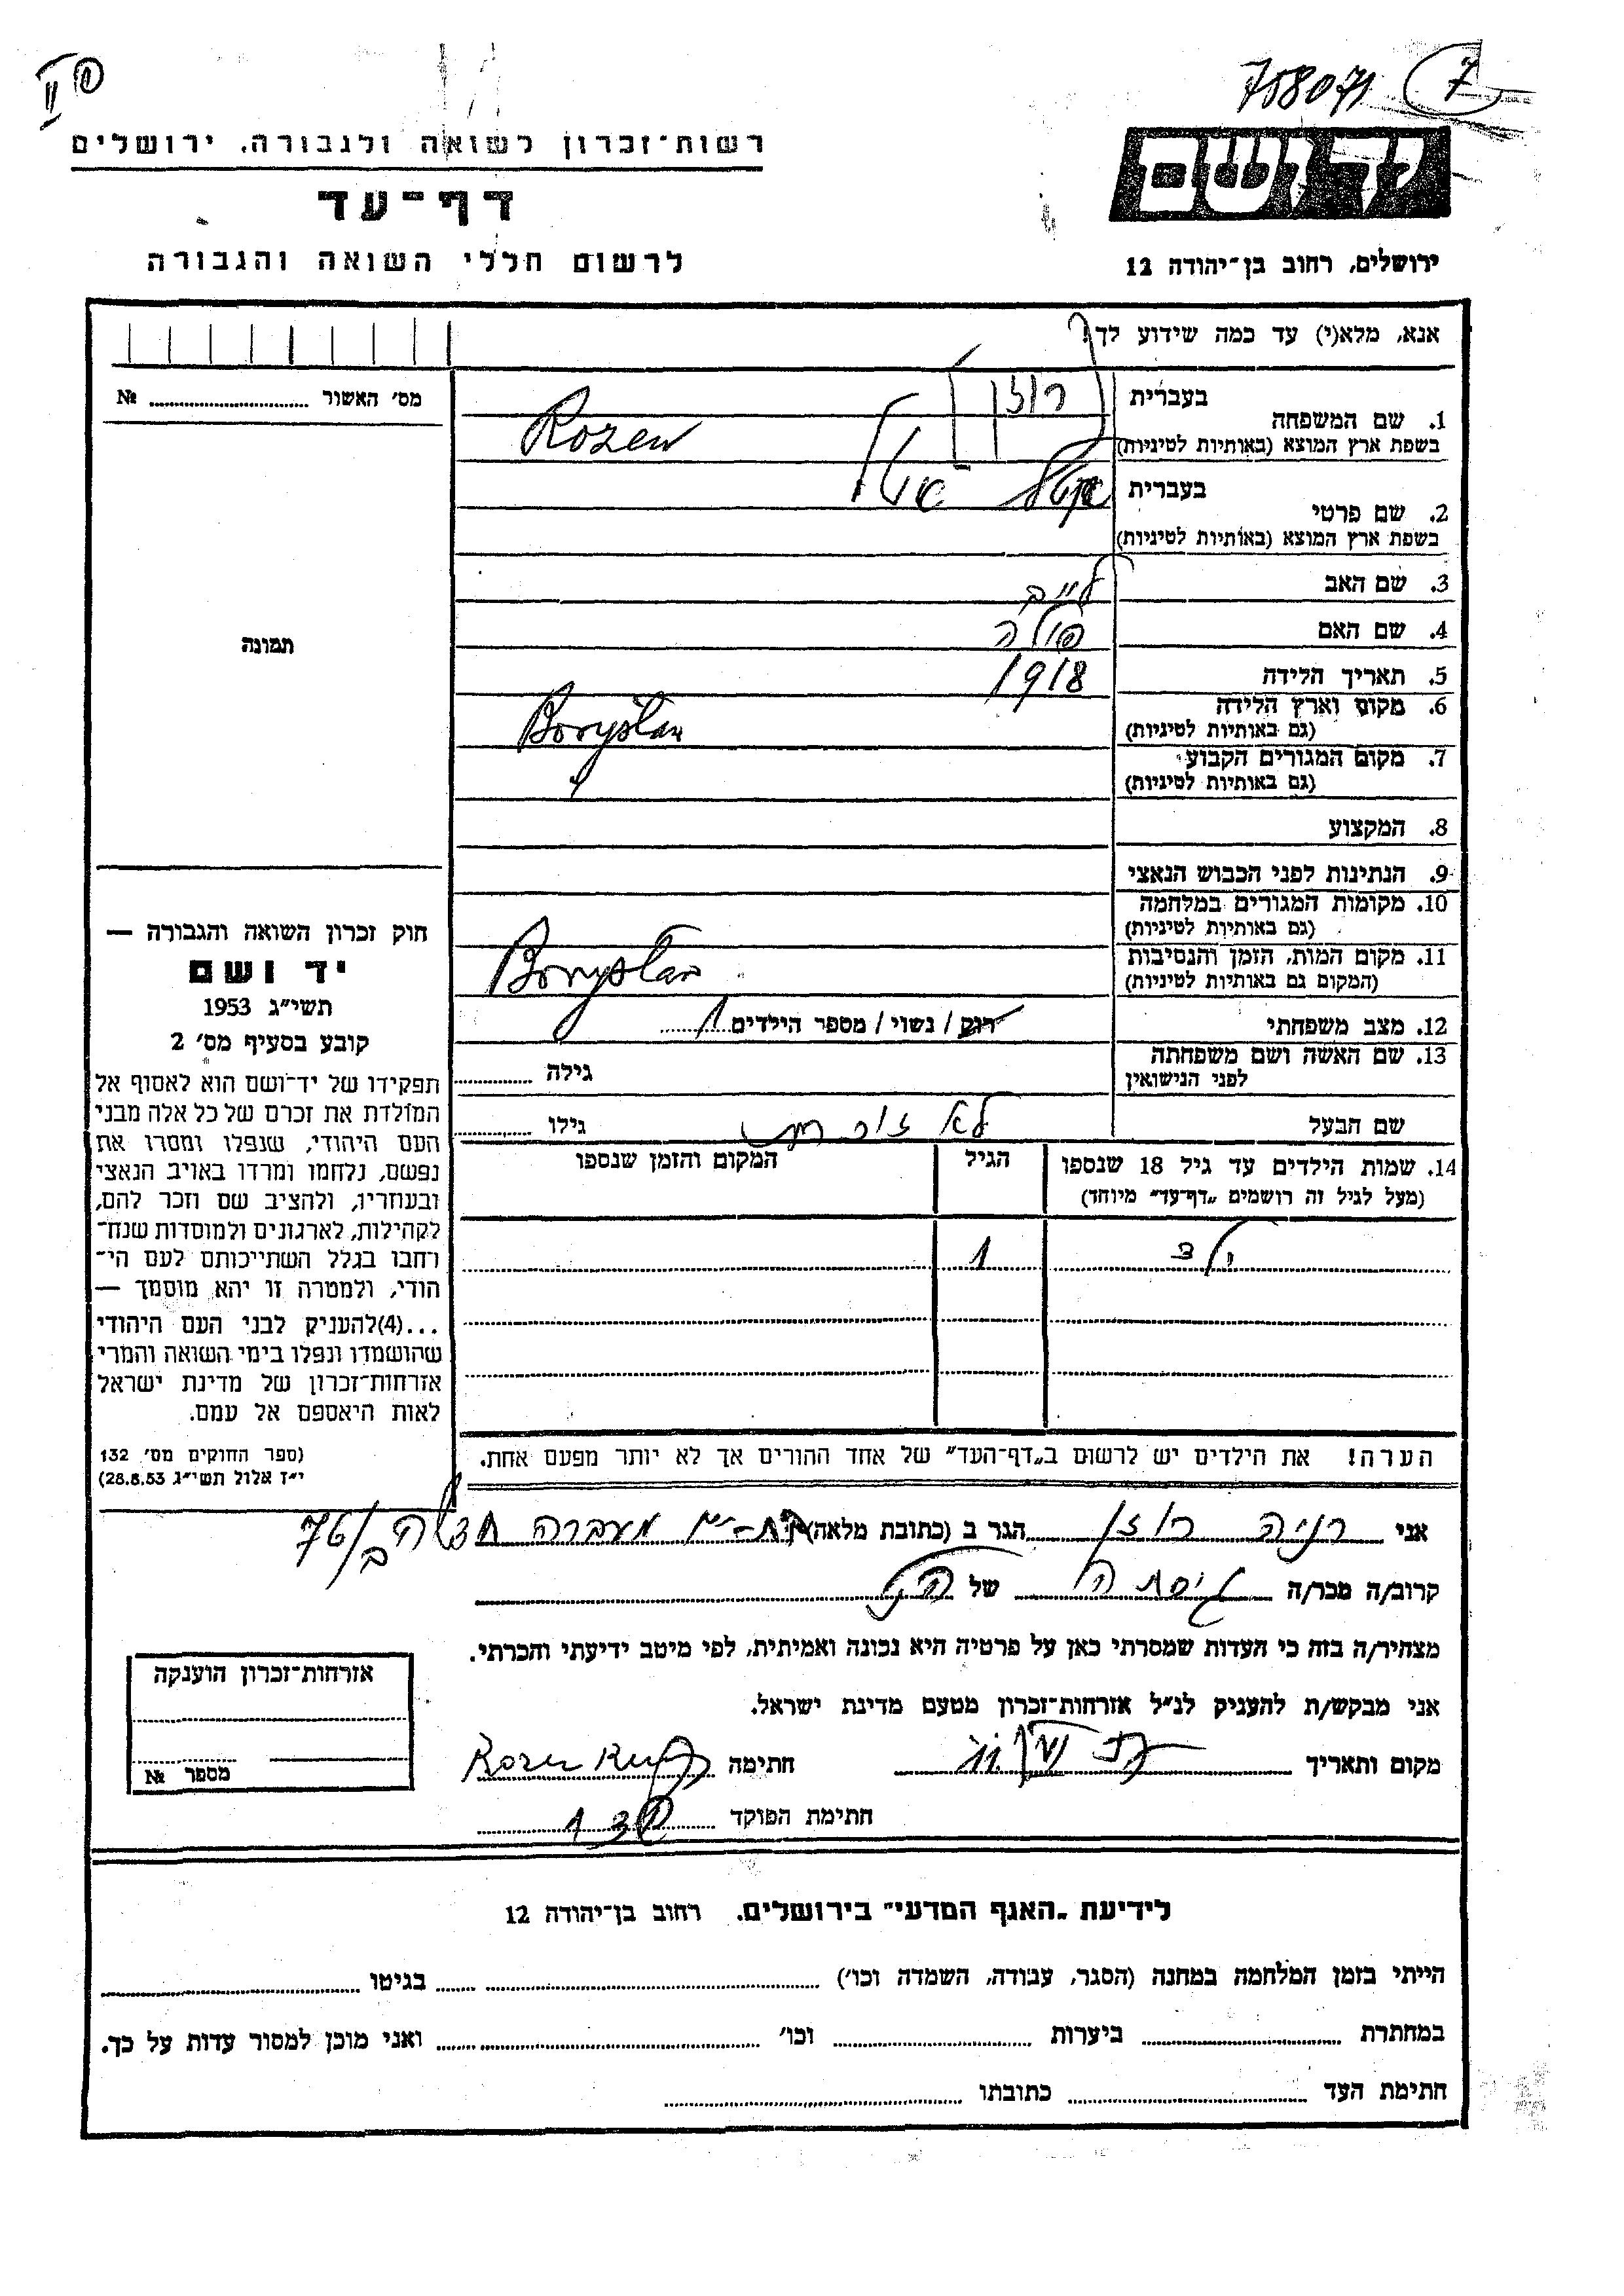 758071 7
רשות־זכרון לשואה ולגבורה, ירושלים
דף־עד
לרשום חללי השואה והגבורה
יד ושם
ירושלים, רחוב בן־יהודה 12
אנא, מלא(י) עד כמה שידוע לך!
מס׳ האשור № 
1. שם המשפחה
בעברית רוזן
בשפת ארץ המוצא (באותיות לטיניות) Rozen
2. שם פרטי
בעברית
בשפת ארץ המוצא (באותיות לטיניות)
3. שם האב לייב
4. שם האם
5. תאריך הלידה 1918
6. מקום וארץ הלידה
(גם באותיות לטיניות) Borysław
7. מקום המגורים הקבוע
(גם באותיות לטיניות)
8. המקצוע
9. הנתינות לפני הכבוש הנאצי
10. מקומות המגורים במלחמה
(גם באותיות לטיניות)
11. מקום המות, הזמן והנסיבות
(המקום גם באותיות לטיניות) Borysław
12. מצב משפחתי רווק / נשוי / מספר הילדים 1
13. שם האשה ושם משפחתה
לפני הנישואין גילה
שם הבעל לא זוכרת גילו
תמונה
חוק זכרון השואה והגבורה —
יד ושם
תשי״ג 1953
קובע בסעיף מס׳ 2
תפקידו של יד־ושם הוא לאסוף אל
המולדת את זכרם של כל אלה מבני
העם היהודי, שנפלו ומסרו את
נפשם, נלחמו ומרדו באויב הנאצי
ובעוזריו, ולהציב שם וזכר להם,
לקהילות, לארגונים ולמוסדות שנח־
רחבו בגלל השתייכותם לעם הי־
הודי, ולמטרה זו יהא מוסמך —
...(4)להעניק לבני העם היהודי
שהושמדו ונפלו בימי השואה והמרי
אזרחות־זכרון של מדינת ישראל
לאות היאספם אל עמם.
(ספר החוקים מס׳ 132
י״ז אלול תשי״ג 28.8.53)
14. שמות הילדים עד גיל 18 שנספו
(מעל לגיל זה רושמים „דף־עד״ מיוחד)
הגיל
המקום והזמן שנספו
ילד 1
הערה! את הילדים יש לרשום ב„דף־העד״ של אחד ההורים אך לא יותר מפעם אחת.
אני רניה רוזן הגר ב (כתובת מלאה) בת-ים מעברה
קרוב/ה מכר/ה גיסתה של
מצהיר/ה בזה כי העדות שמסרתי כאן על פרטיה היא נכונה ואמיתית, לפי מיטב ידיעתי והכרתי.
אני מבקש/ת להעניק לנ״ל אזרחות־זכרון מטעם מדינת ישראל.
מקום ותאריך חתימה Rozen
חתימת הפוקד
אזרחות־זכרון הוענקה
מספר №
לידיעת „האגף המדעי״ בירושלים. רחוב בן־יהודה 12
הייתי בזמן המלחמה במחנה (הסגר, עבודה, השמדה וכו׳) בגיטו
במחתרת ביערות וכו׳ ואני מוכן למסור עדות על כך.
חתימת העד כתובתו